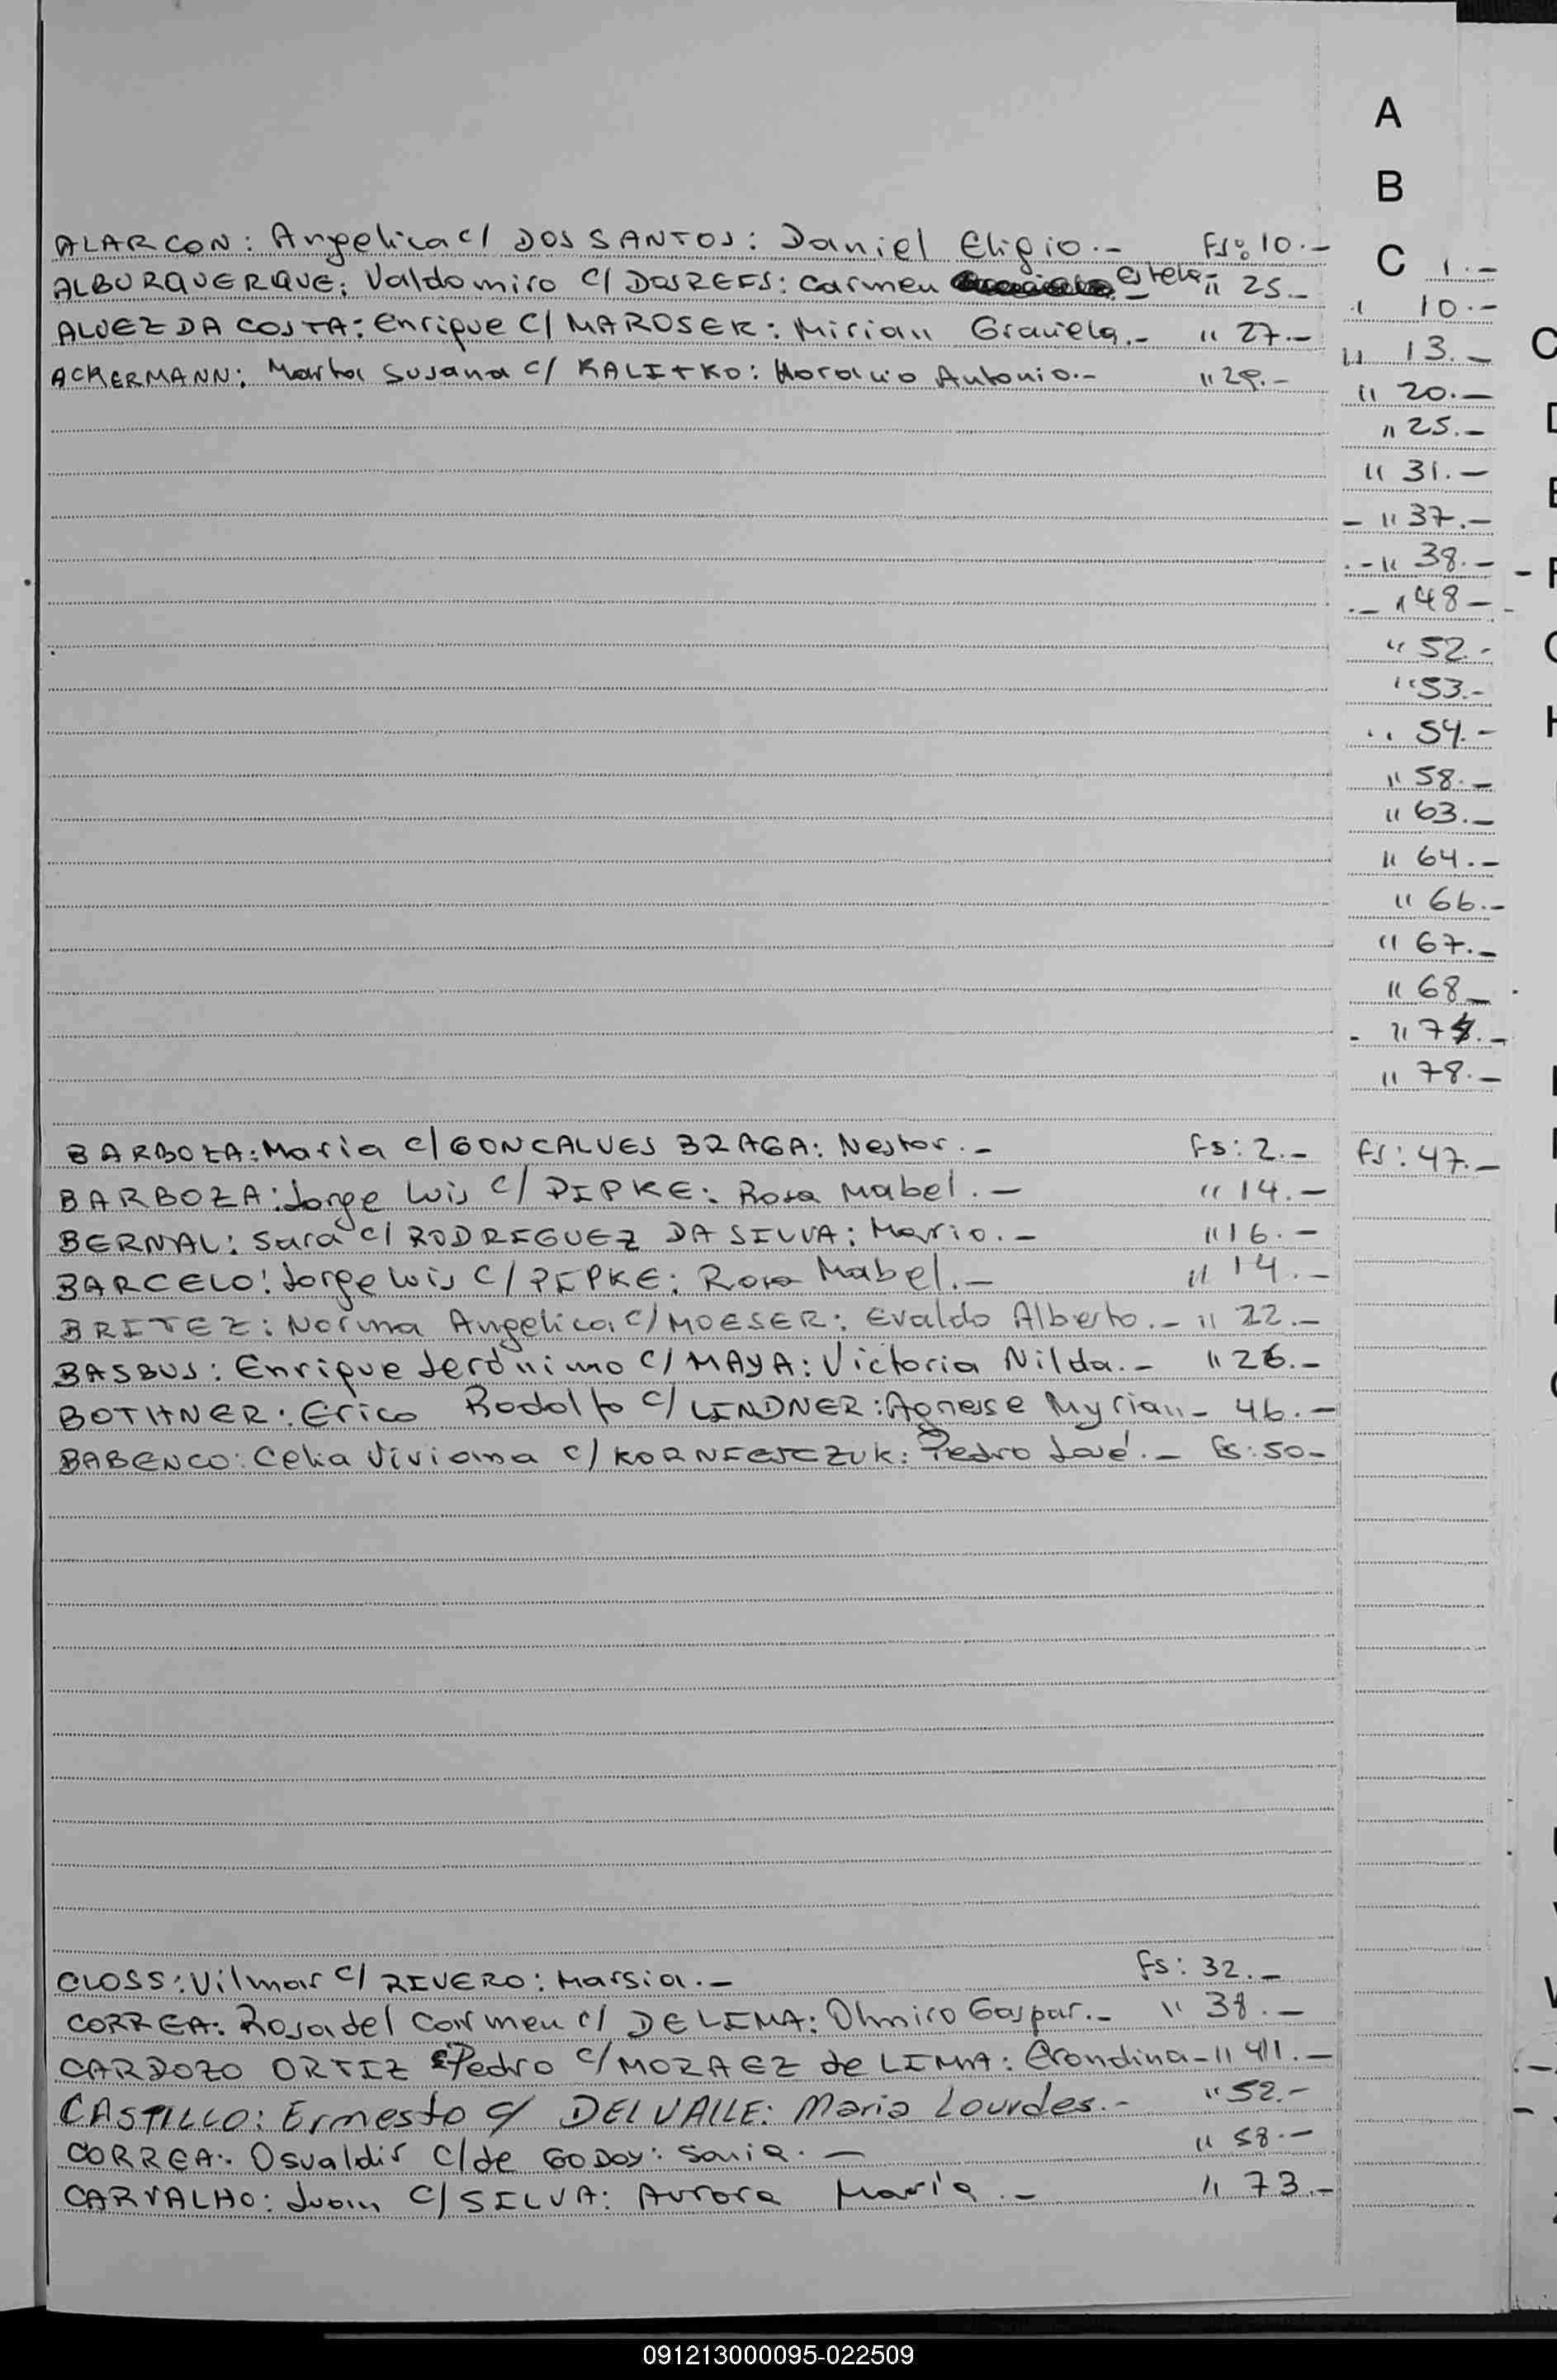 A
B
C
ALARCON: Angelica c/ DOS SANTOS: Daniel Eligio.- Fs: 10.-
ALBURQUERQUE: Valdomiro c/ DOSREIS: Carmen Estela.- " 25.-
ALVEZ DA COSTA: Enrique c/ MAROSEK: Mirian Graciela.- " 27.-
ACKERMANN: Marta Susana c/ KALITKO: Horacio Antonio.- " 29.-
1.-
" 10.-
" 13.-
" 20.-
" 25.-
" 31.-
- " 37.-
.- " 38.-
.- " 48-
" 52.-
" 53.-
" 54.-
" 58.-
" 63.-
" 64.-
" 66.-
" 67.-
" 68-
" 78.-
BARBOZA: Maria c/ GONCALVES BRAGA: Nestor.- Fs: 2.-
Fs: 47.-
BARBOZA: Jorge Luis c/ PIPKE: Rosa Mabel.- " 14.-
BERNAL: Sara c/ RODRIGUEZ DA SILVA: Mario.- " 16.-
BARCELO: Jorge Luis c/ PIPKE: Rosa Mabel.- " 14.-
BRITEZ: Norma Angelica c/ MOESER: Evaldo Alberto.- " 22.-
BASBUS: Enrique Jerónimo c/ MAYA: Victoria Nilda.- " 26.-
BOTHNER: Erico Rodolfo c/ LINDNER: Agnesse Myrian- 46.-
BABENCO: Celia Viviana c/ KORNIEJCZUK: Pedro José.- Fs: 50-
CLOSS: Vilmar c/ RIVERO: Marsia.- Fs: 32.-
CORREA: Rosa del Carmen c/ DE LIMA: Olmiro Gaspar.- " 38.-
CARDOZO ORTIZ Pedro c/ MORAEZ de LIMA: Erondina- " 41.-
CASTILLO: Ernesto c/ DEL VALLE: Maria Lourdes.- " 52.-
CORREA: Osvaldir c/ de GODOY: Sonia.- " 58.-
CARVALHO: Juan c/ SILVA: Aurora María.- " 73.-
091213000095-022509